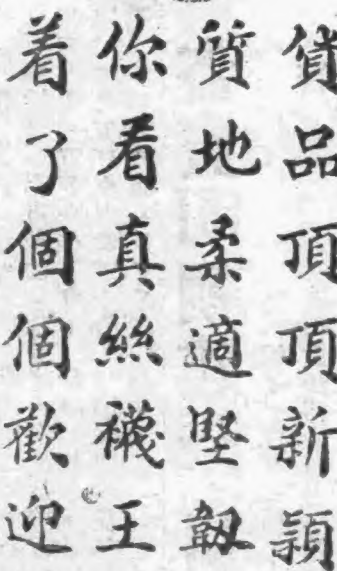 貨品頂頂新穎
質地柔適堅韌
你看真絲襪王
着了個個歡迎